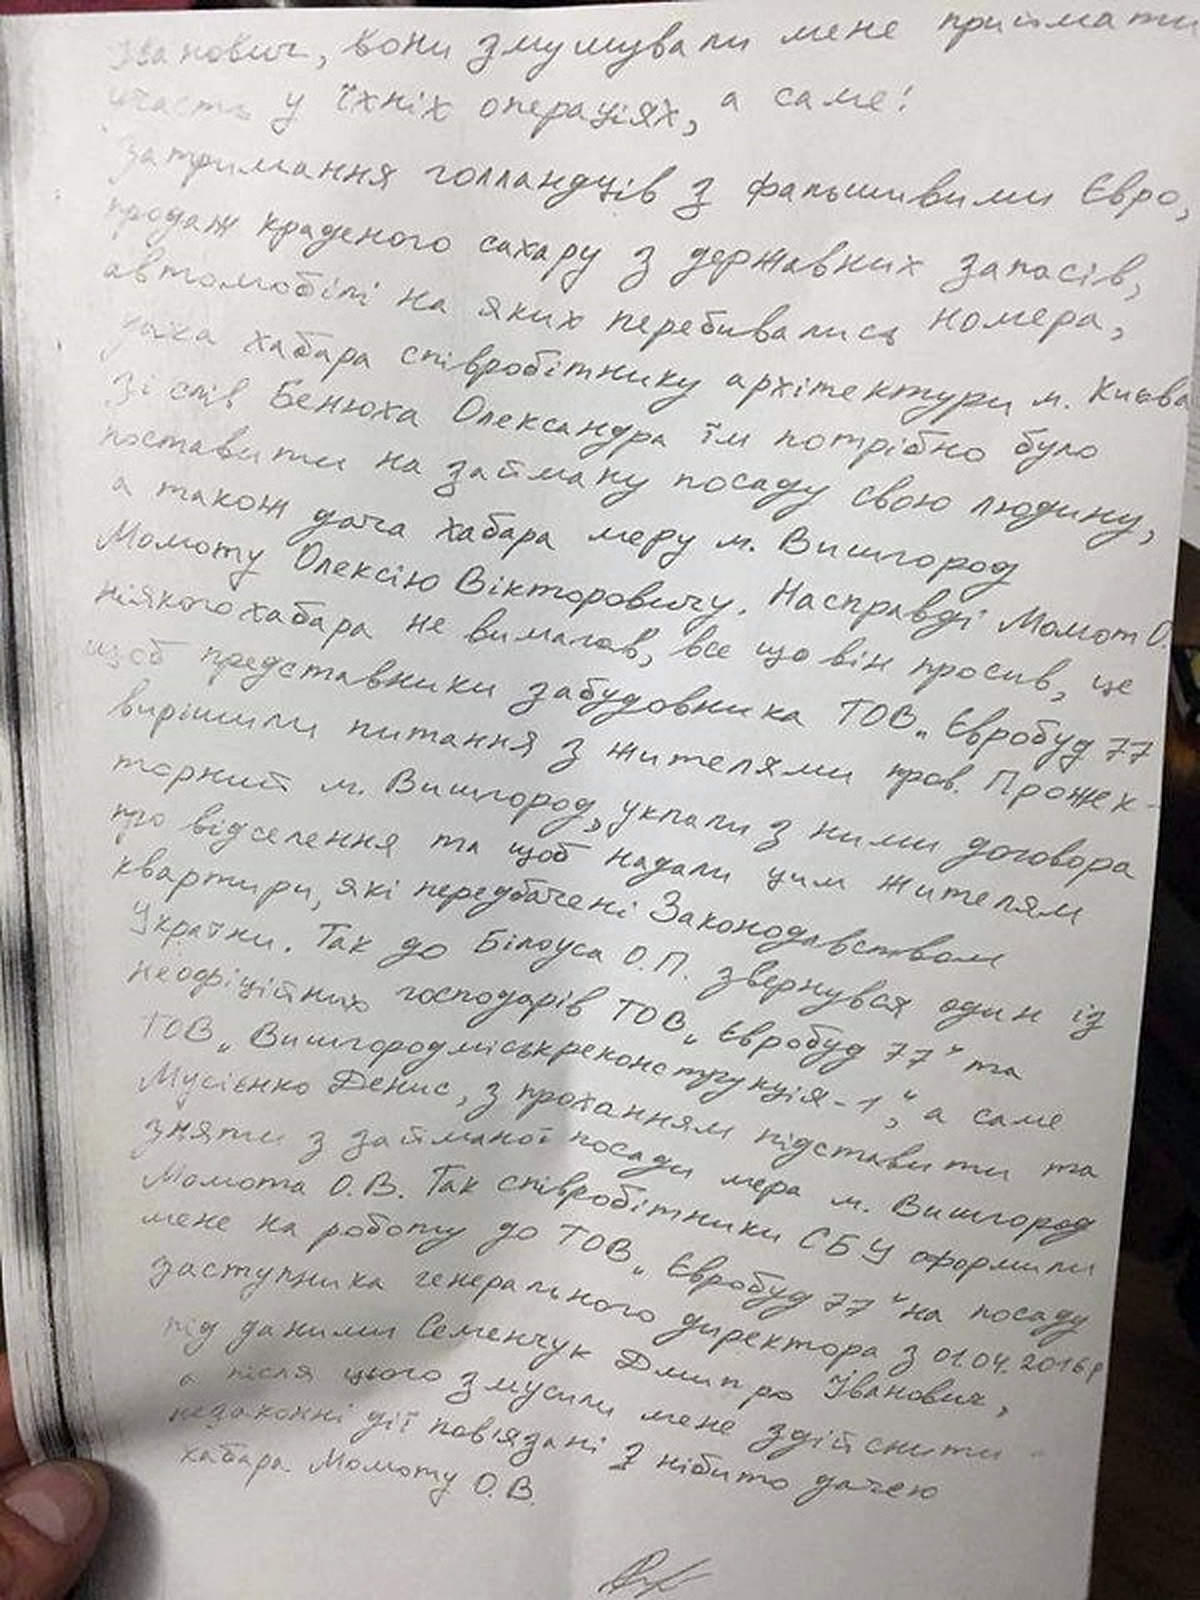 Іванович, вони змумували мене приймати
участь у їхніх операціях, а саме:
Затримання голландців з фальшивими Євро,
продаж краденого сахару з державних запасів,
автомобілі на яких перебивались номера,
дача хабара співробітнику архітектури м. Києва
зі слів Бенюха Олександра їм потрібно було
поставити на займану посаду свою людину,
а також дача хабара меру м. Вишгород
Момоту Олексію Вікторовичу. Насправді Момот О.
ніякого хабара не вимагав, все що він просив, це
щоб представники забудовника ТОВ „Євробуд 77
вирішили питання з жителями пров. Прожек-
торний м. Вишгород, уклали з ними договора
про відселення та щоб надали цим жителям
квартири, які передбачені Законодавством
України. Так до Білоуса О.П. звернувся один із
неофіційних господарів ТОВ „Євробуд 77" та
ТОВ „Вишгородміськреконструкція-1", а саме
Мусієнко Денис, з проханням підставити та
зняти з займаної посади мера м. Вишгород
Момота О.В. Так співробітники СБУ оформили
мене на роботу до ТОВ „Євробуд 77" на посаду
заступника генерального директора з 01.04.2016р
під даними Семенчук Дмипро Іванович,
а після цього змусили мене здійснити
незаконні дії пов'язані з нібито дачею
хабара Момоту О.В.